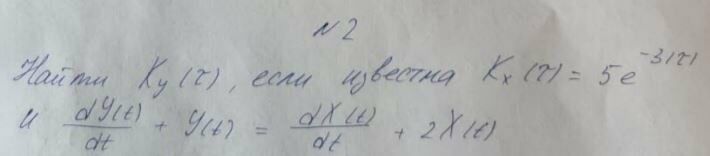 № 2
Найти Ky(τ), если известна Kx(τ) = 5e^{-3|τ|}
и dY(t)/dt + Y(t) = dX(t)/dt + 2X(t)